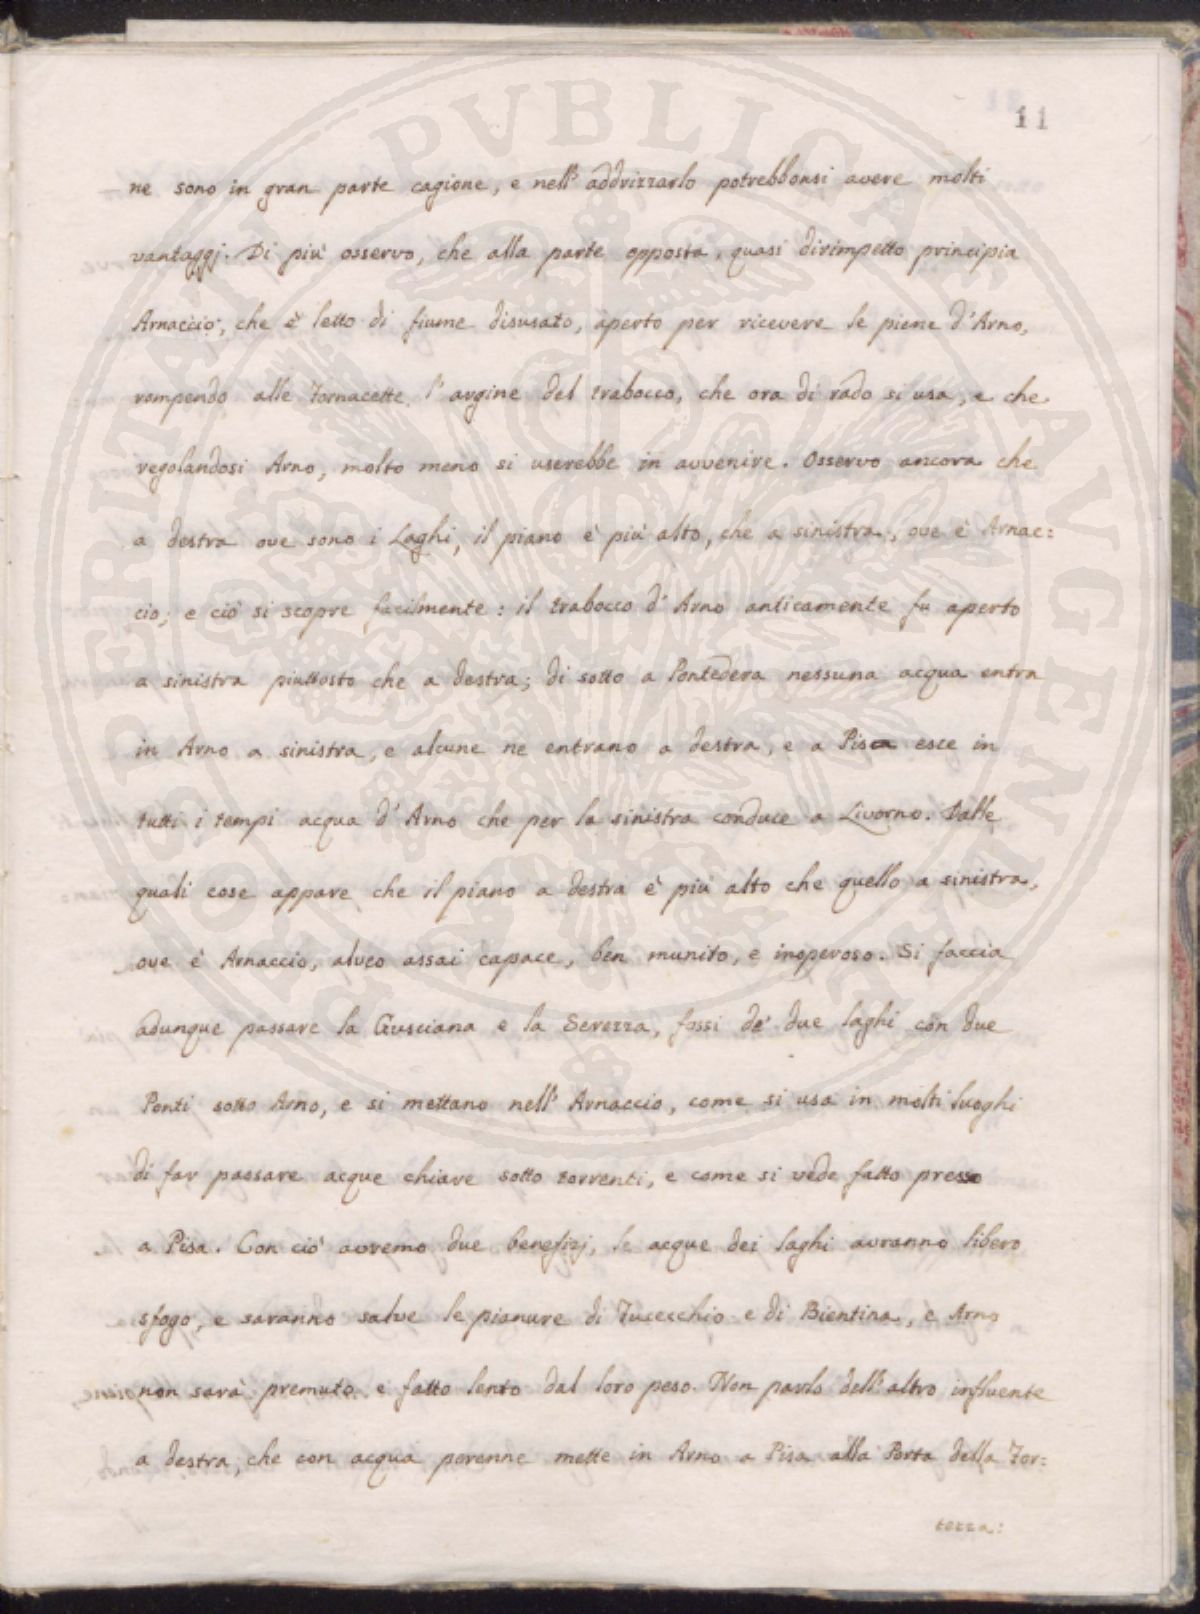 11
ne sono in gran parte cagione, e nell' addrizzarlo potrebbonsi avere molti
vantaggj. Di più osservo, che alla parte opposta, quasi dirimpetto principia
Arnaccio, che è letto di fiume disusato, aperto per ricevere le piene d' Arno,
rompendo alle Fornacette l' argine del trabocco, che ora di rado si usa, e che
regolandosi Arno, molto meno si userebbe in avvenire. Osservo ancora che
a destra ove sono i Laghi, il piano è più alto, che a sinistra, ove è Arnac=
cio; e ciò si scopre facilmente: il trabocco d' Arno anticamente fu aperto
a sinistra piuttosto che a destra; di sotto a Pontedera nessuna acqua entra
in Arno a sinistra, e alcune ne entrano a destra, e a Pisa esce in
tutti i tempi acqua d' Arno che per la sinistra conduce a Livorno. Dalle
quali cose appare che il piano a destra è più alto che quello a sinistra,
ove è Arnaccio, alveo assai capace, ben munito, e inoperoso. Si faccia
adunque passare la Gusciana e la Serezza, fossi de' due laghi con due
Ponti sotto Arno, e si mettano nell' Arnaccio, come si usa in molti luoghi
di far passare acque chiare sotto torrenti, e come si vede fatto presso
a Pisa. Con ciò avremo due benefizj, le acque dei laghi avranno libero
sfogo, e saranno salve le pianure di Fucecchio e di Bientina, e Arno
non sarà premuto, e fatto lento dal loro peso. Non parlo dell' altro influente
a destra, che con acqua perenne mette in Arno a Pisa alla Porta della For=
tezza:
PROSPERITATI PVBLICAE AVGENDAE